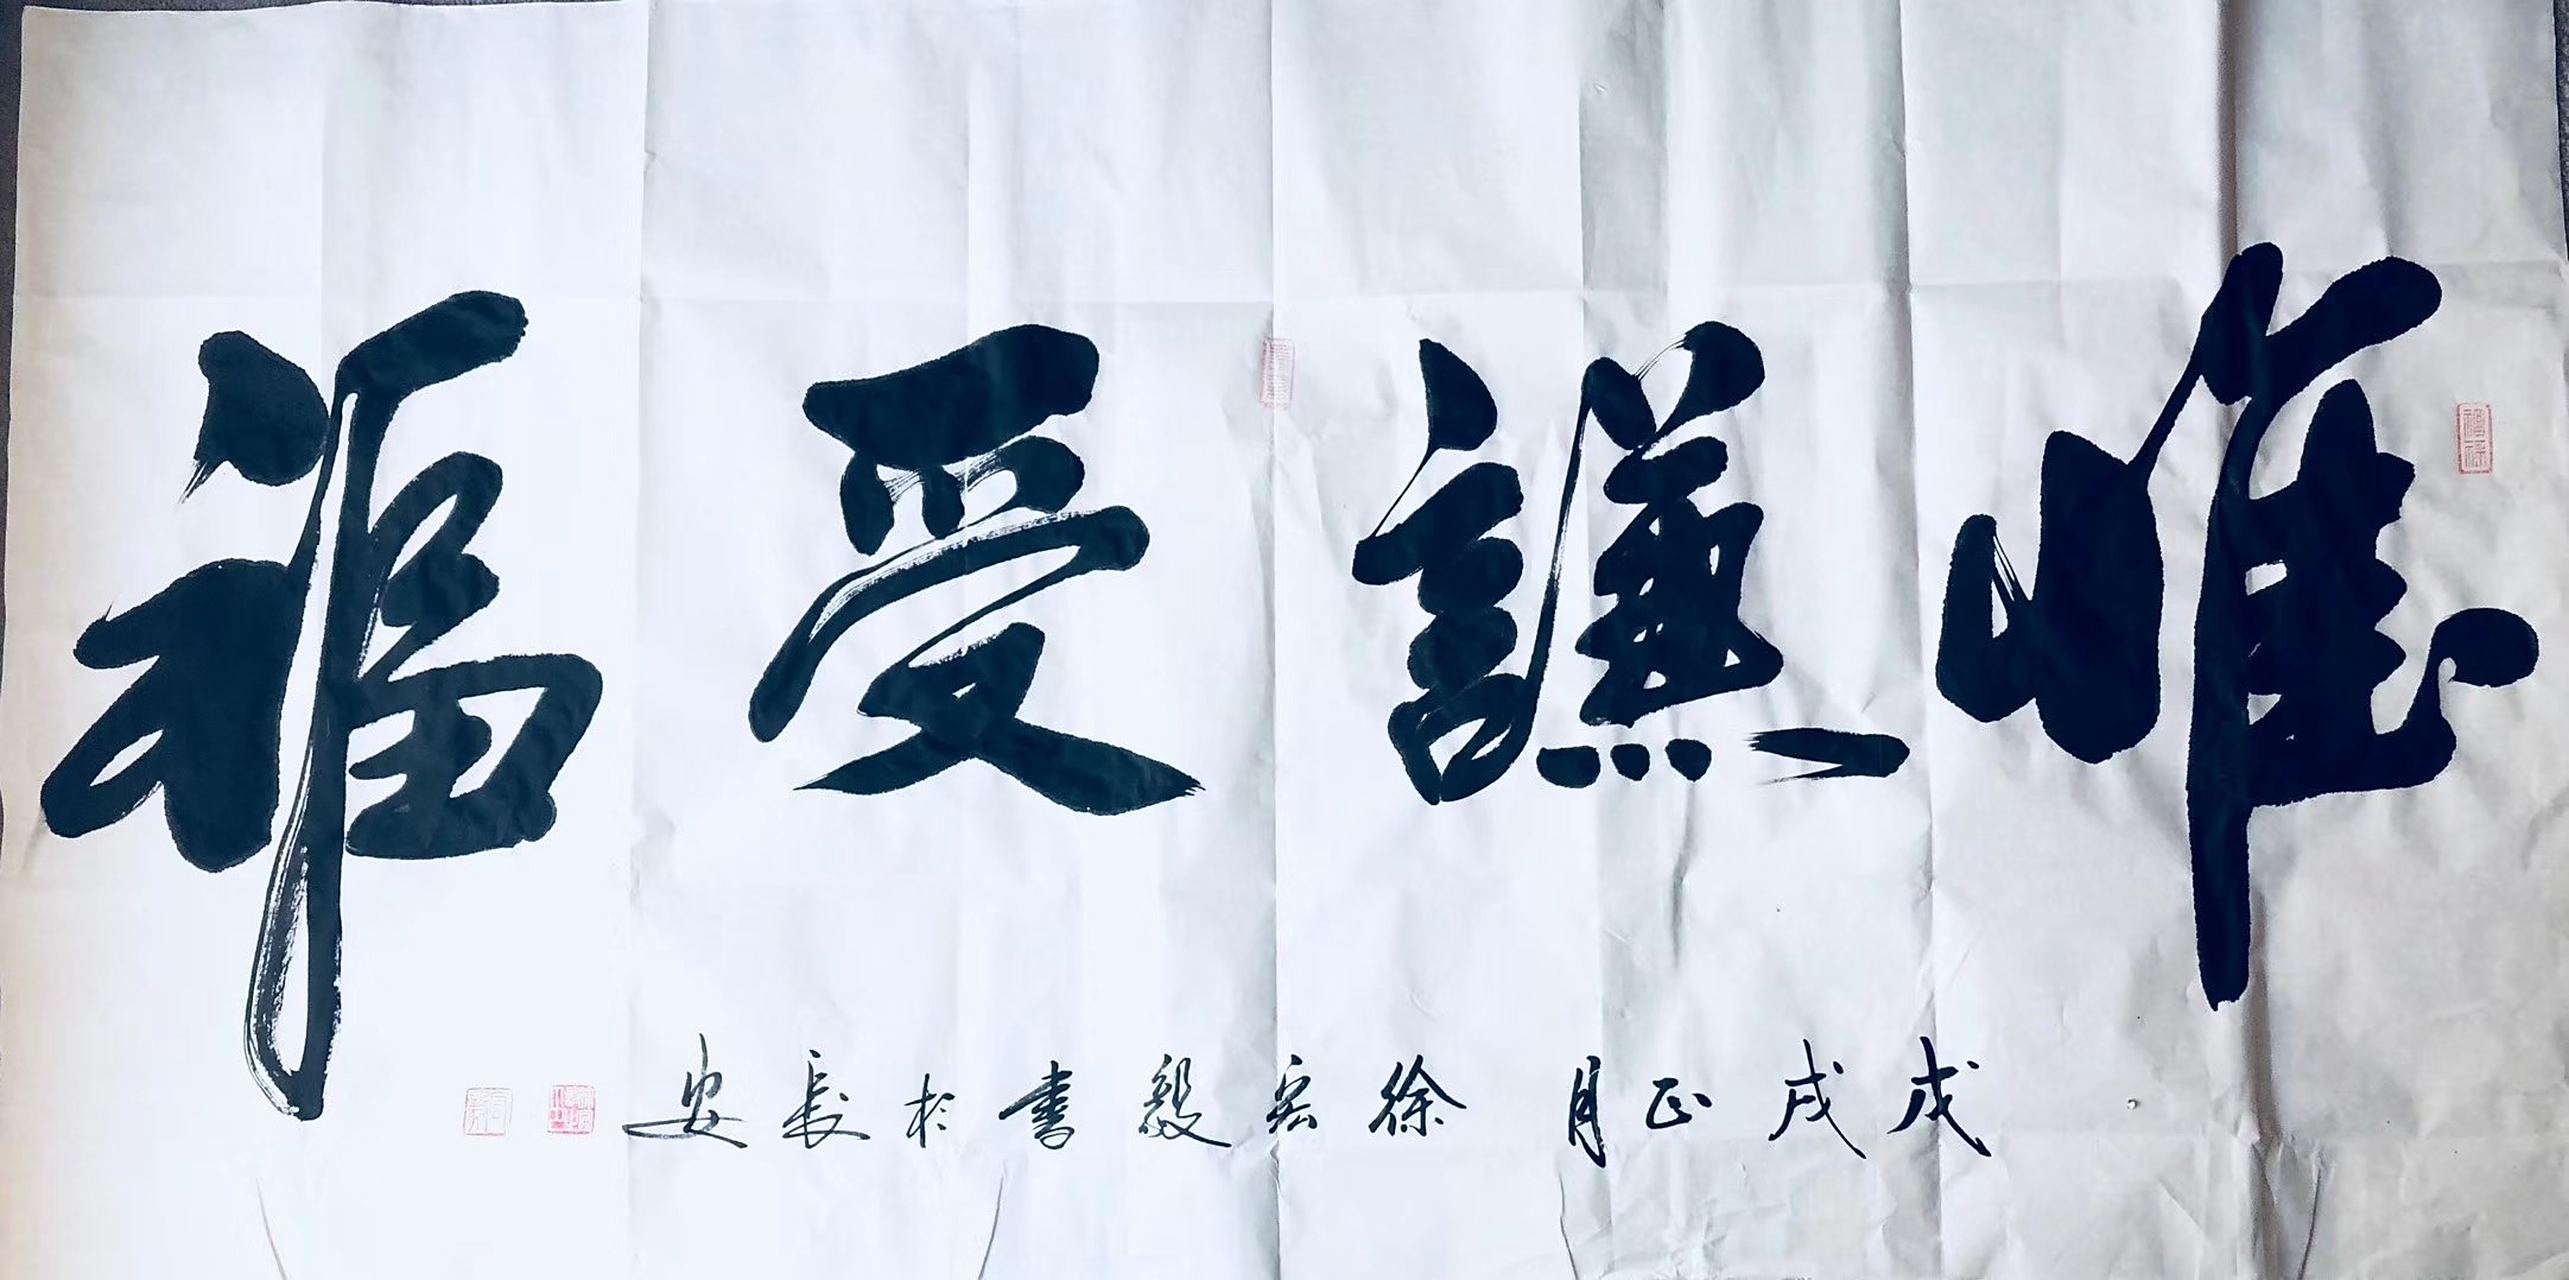 唯謙受福
戊戌正月徐宏毅書於長安